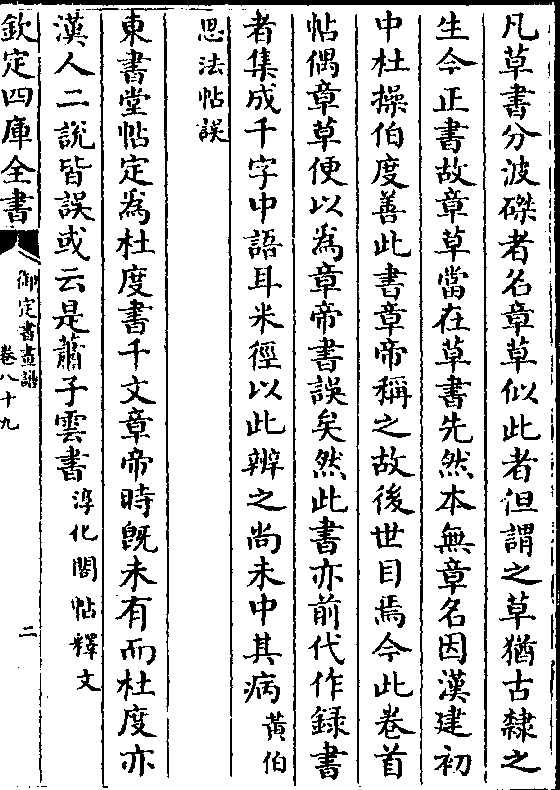 凡草書分波磔者名章草似此者但謂之草猶古隸之
生今正書故章草當在草書先然本無章名因漢建初
中杜操伯度善此書章帝稱之故後世目焉今此卷首
帖偶章草便以為章帝書誤矣然此書亦前代作録書
者集成千字中語耳米徑以此辨之尚未中其病黃伯
思法帖誤
東書堂帖定為杜度書千文章帝時旣未有而杜度亦
漢人二說皆誤或云是蕭子雲書淳化閣帖釋文
欽定四庫全書
御定書畫譜
卷八十九
二